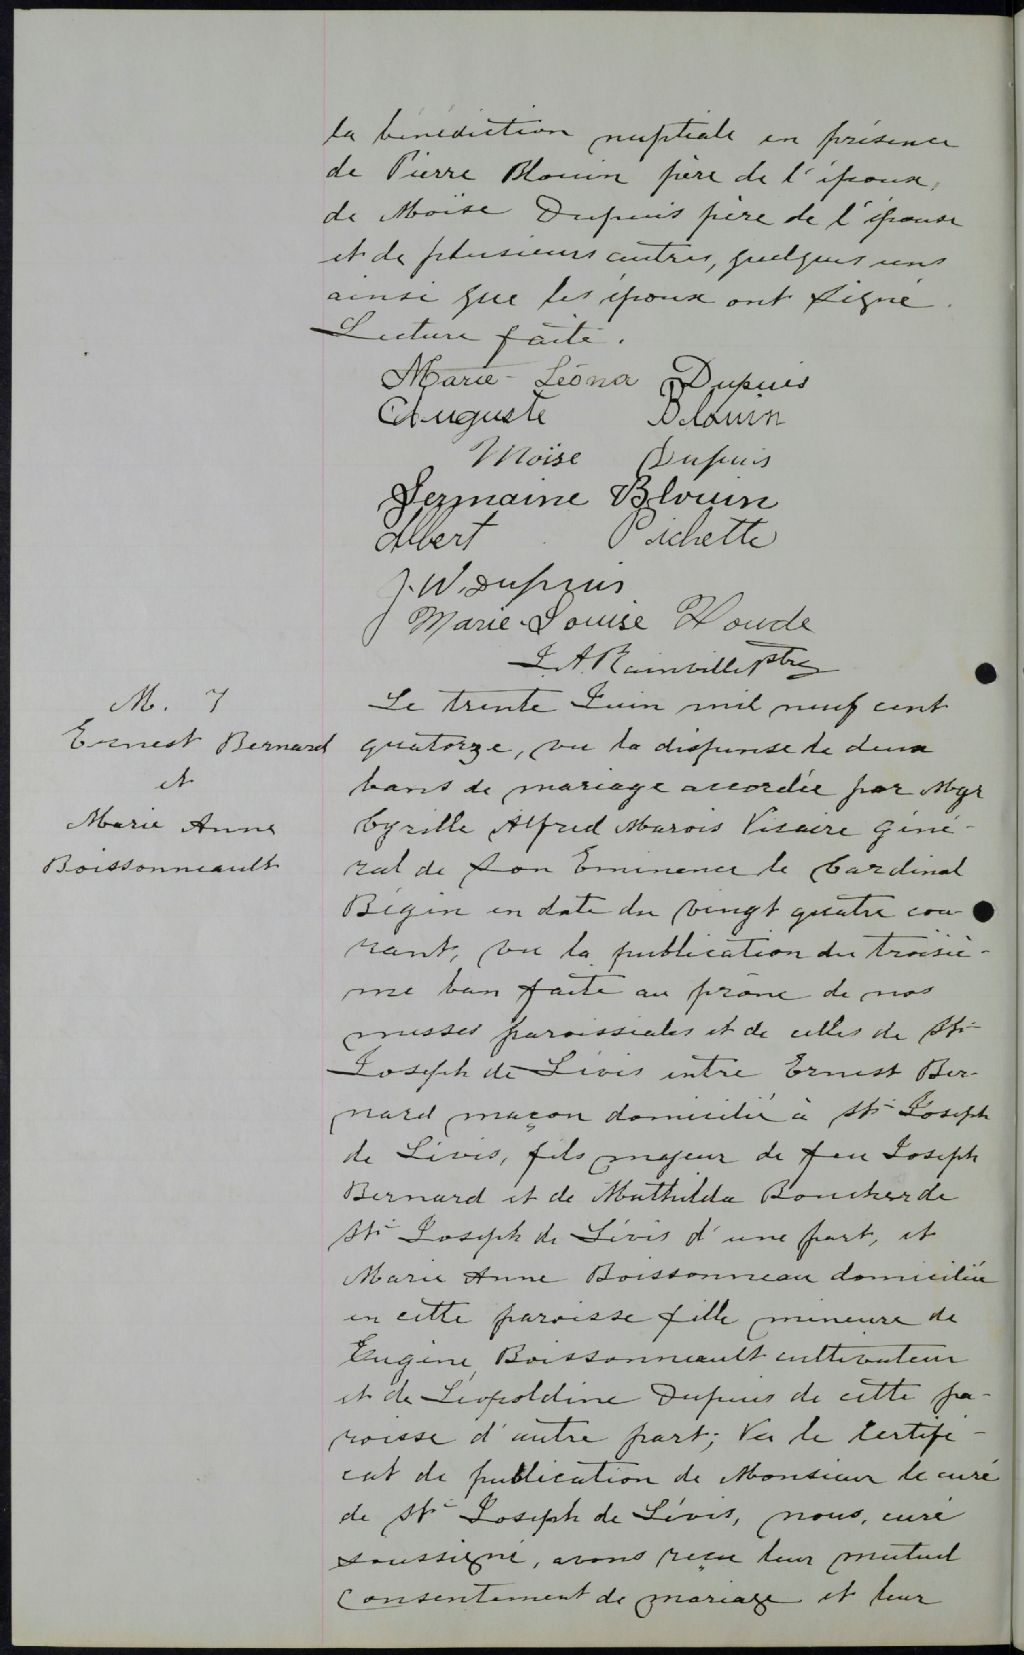 la bénédiction nuptiale en présence
de Pierre Blouin père de l'époux,
de Moïse Dupuis père de l'épouse
et de plusieurs autres, quelques uns
ainsi que les époux ont signé.
Lecture faite.
Marie-Léona Dupuis
Auguste Blouin
Moïse Dupuis
Germaine Blouin
Albert Pichette
J. W. Dupuis
Marie-Louise Houde
J. A. Rainville Ptre
M. 7
Ernest Bernard
et
Marie Anne
Boissonneault
Le trente Juin mil neuf cent
quatorze, vu la dispense de deux
bans de mariage accordée par Mgr
Cyrille Alfred Marois Vicaire Géné-
ral de Son Eminence le Cardinal
Bégin en date du vingt quatre cou-
rant, vu la publication du troisiè-
me ban faite au prône de nos
messes paroissiales et de celles de St-
Joseph de Lévis entre Ernest Ber-
nard maçon domicilié à St-Joseph
de Lévis, fils majeur de feu Joseph
Bernard et de Mathilda Boucher de
St-Joseph de Lévis d'une part, et
Marie Anne Boissonneau domiciliée
en cette paroisse fille mineure de
Eugène Boissonneault cultivateur
et de Léopoldine Dupuis de cette pa-
roisse d'autre part; Vu le certifi-
cat de publication de Monsieur le curé
de St-Joseph de Lévis, nous, curé
soussigné, avons reçu leur mutuel
consentement de mariage et leur